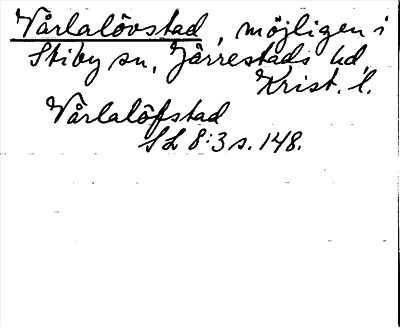 Vårlalövstad, möjligen i
Stiby sn, Järrestads hd,
Krist. l.
Vårlalöfstad
SL 8:3 s. 148.